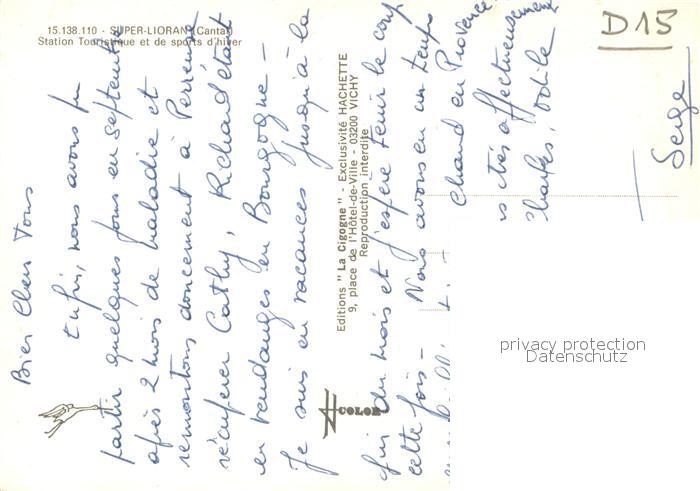 15.138.110 - SUPER-LIORAN (Cantal)
Station Touristique et de sports d'hiver
Bien Chers Tous
Enfin, nous avons pu
partir quelques jours en septembre
après 2 mois de maladie et
remontons doucement à
récupérer Cathy, Richard était
en vendanges en Bourgogne -
Je suis en vacances jusqu'à la
fin du mois et j'espère tenir le coup
cette fois - Nous avons eu un temps
chaud en Provence
affectueusement
Serge
D15
Editions "La Cigogne" - Exclusivité HACHETTE
9, place de l'Hôtel-de-Ville - 03200 VICHY
Reproduction interdite
COLOR
privacy protection
Datenschutz